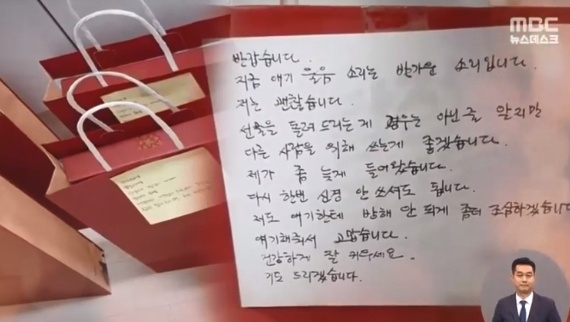 MBC
뉴스데스크
반갑습니다.
지금 애기 울음 소리는 반가운 소리입니다.
저는 괜찮습니다.
선물을 돌려 드리는게 경우는 아닌줄 알지만
다른 사람을 위해 쓰는게 좋겠습니다.
제가 좀 늦게 들어왔습니다.
다시 한번 심경 안 쓰셔도 됩니다.
저도 애기한테 방해 안 되게 좀더 조심하겠습니다
얘기해줘서 고맙습니다.
건강하게 잘 키우세요.
기도 드리겠습니다.